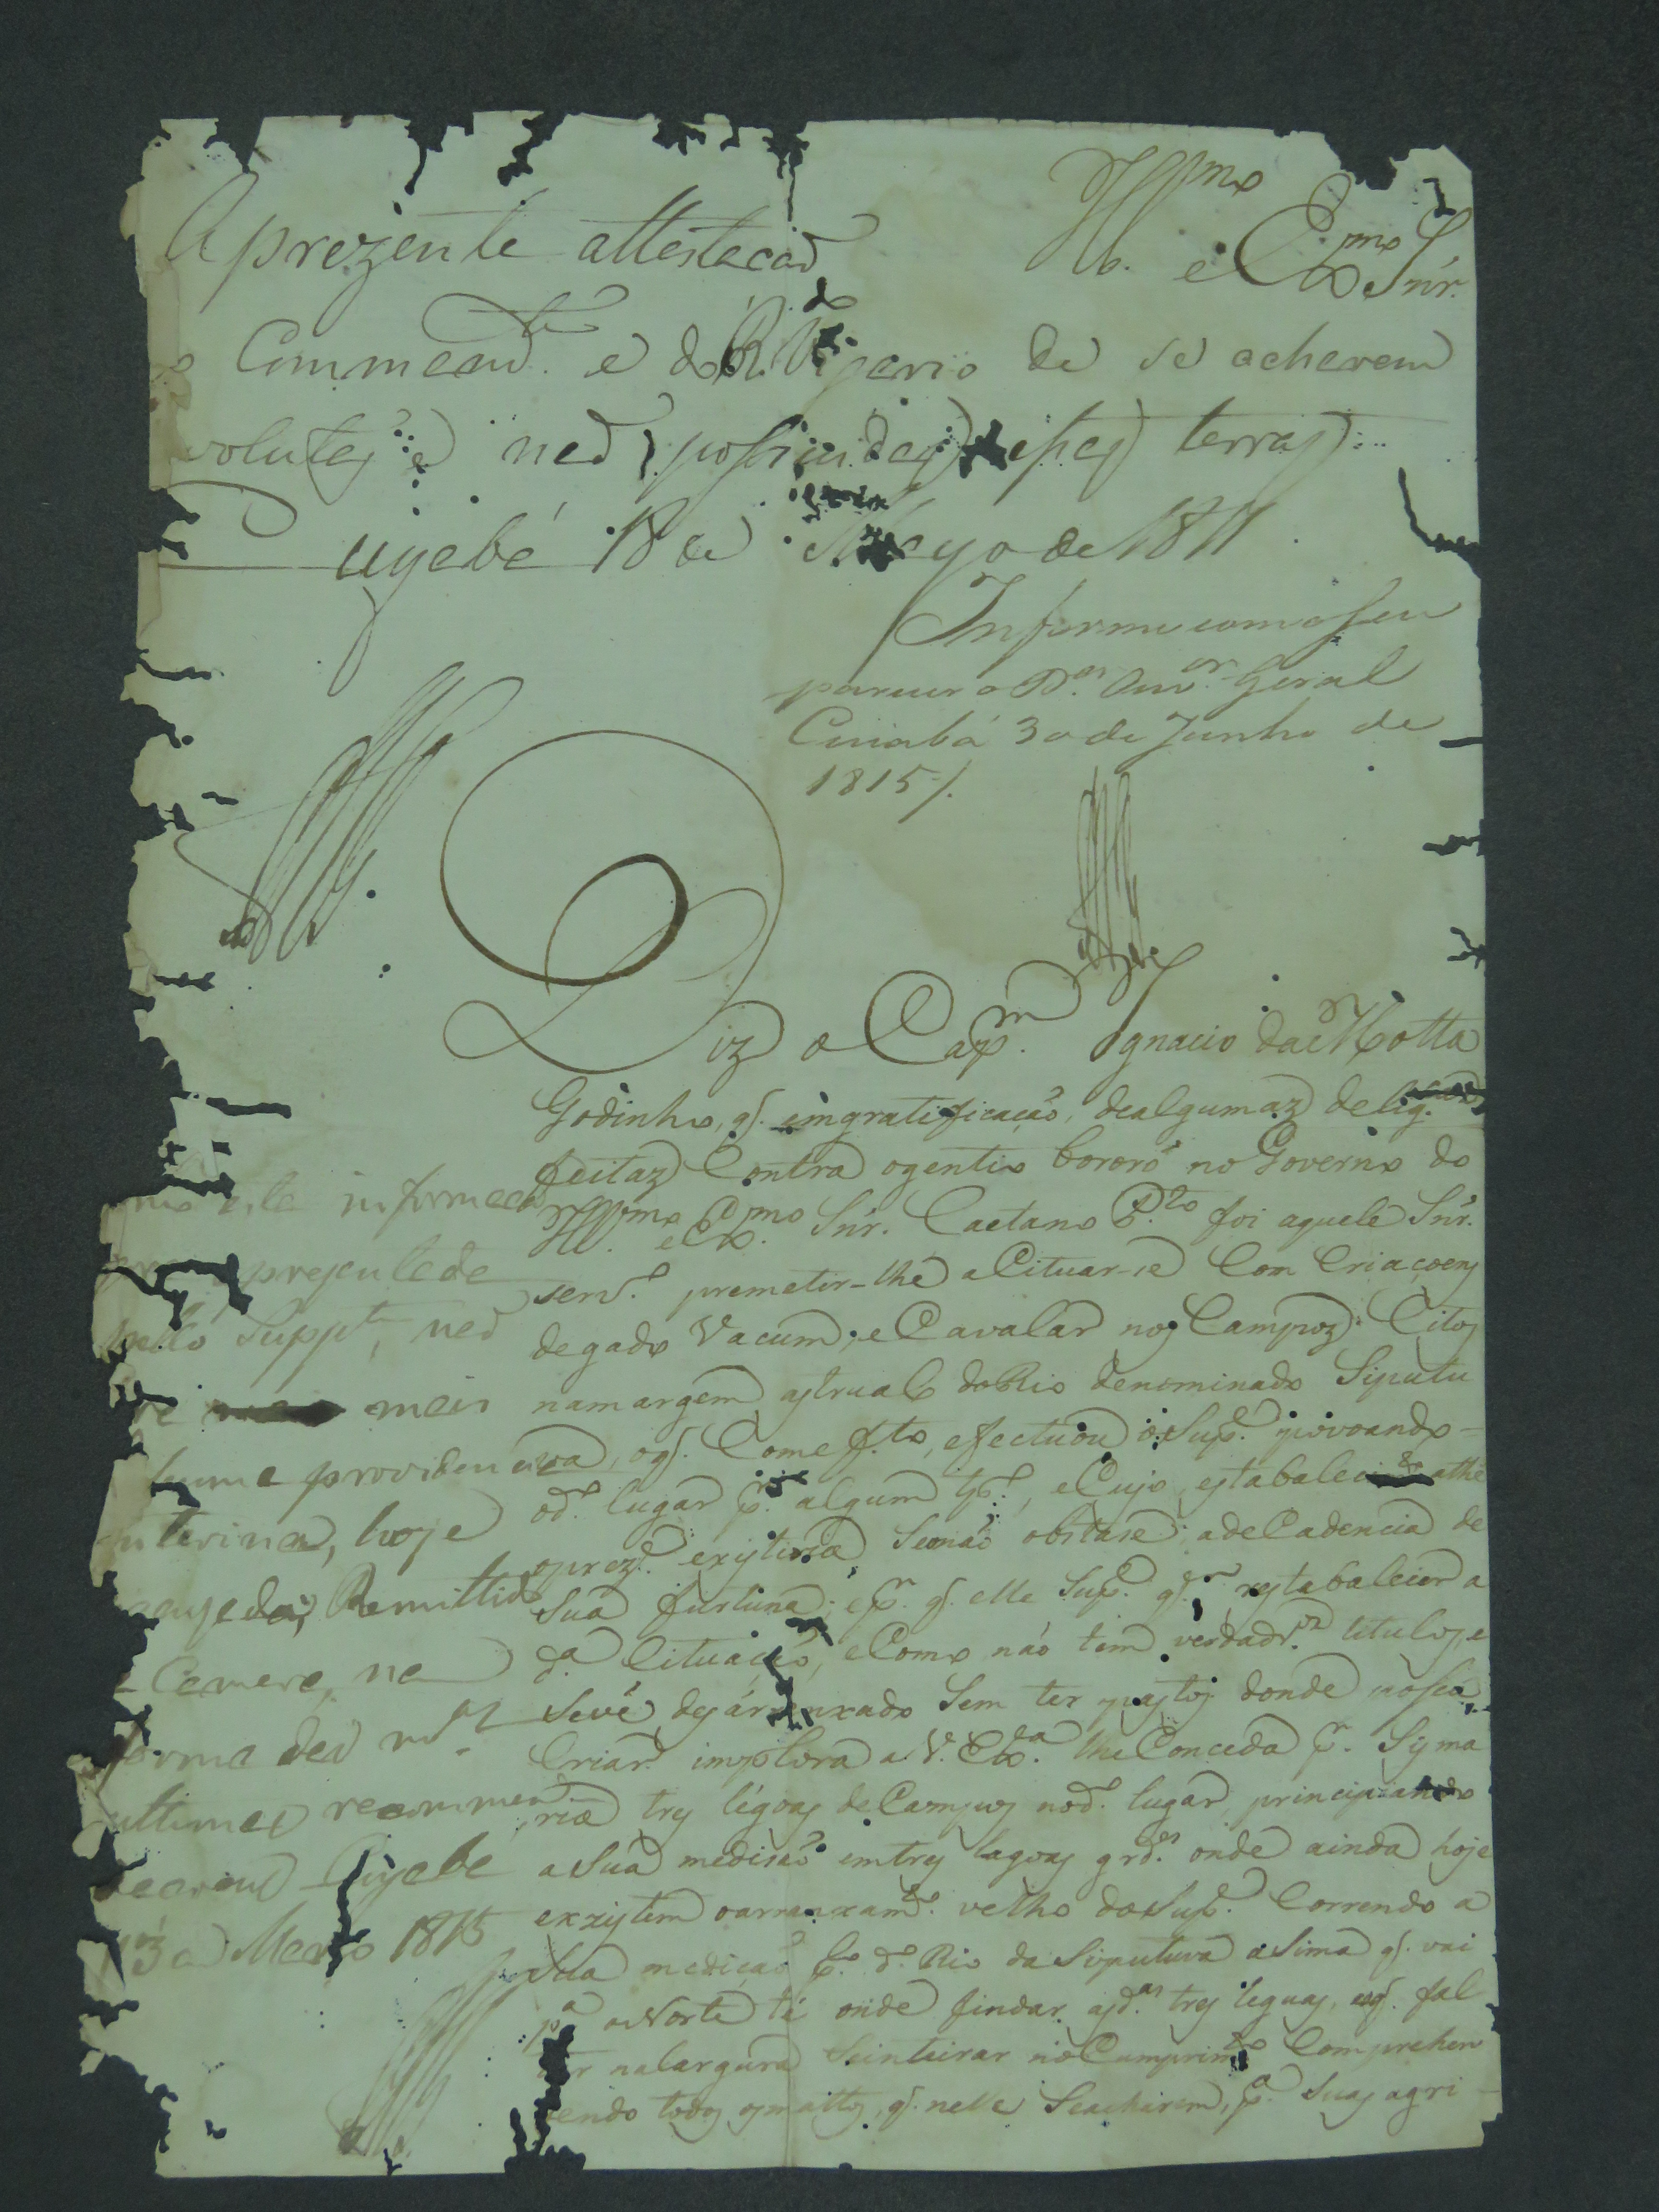 Aprezente attestacaõ
Ill.mo e Ex.mo Snr.
Commend.te e do R.do Vigario de se acharem
volutas e naõ possuidas essas terras
Cuyabá 18 de Mayo de 1811
Informe com o seu
parecer o D.or Ouv.or Geral
Cuiabá 30 de Junho de
1815/.
Diz o Cap.m Ignacio da Motta
Godinho, q̃. em gratificação, de algumaz delig.
feitaz Contra o gentio bororó no Governo do
Ill.mo e Ex.mo Snr. Caetano P.to foi aquele Snr.
serv.o premetir-lhe a Cituar-se Com Criaçoens
de gado Vacum, e Cavalar nos Campoz Citos
na margem astrual do Rio denominado Siputu
va, o q̃. Com ef.to, efectuou o Sup.e povoando-
o d.o lugar p.r algum tp.o, e Cujo estabaleci athe
oprez.e existiria, Senaõ obstase, a deCadencia de
Sua furtuna; e p.r q̃. elle Sup.e q.r restabalecer a
d.a Cituação, e Como não tem verdadr.oz titulos e
Se vê desárranxado Sem ter pastos donde possa
Criar. implora a V. Ex.a lhe Conceda p.r Sysma
ria tres légoas de Campos no d.o lugar, principiando
a Sua medisaõ em tres lagoas grd.es onde ainda hoje
exzistem o arranxam.to velho do Sup.e Correndo a
Sua medicaõ p.lo d.o Rio da Siputuva a Sima q̃. vai
p.a o Norte té onde findar as d.as tres leguas, e o q̃. fal
tar na largura Seinteirar no Cumprim.to Comprehen
dendo todos os mattos, q̃. nelle Seacharem, p.a Suas agri-
esta informaçaõ
Supp.te, naõ
mais
providencia
interina, hoje
Remittida
Camera, na
forma das
ultimas recommen
Cuyaba
13 de Março 1815